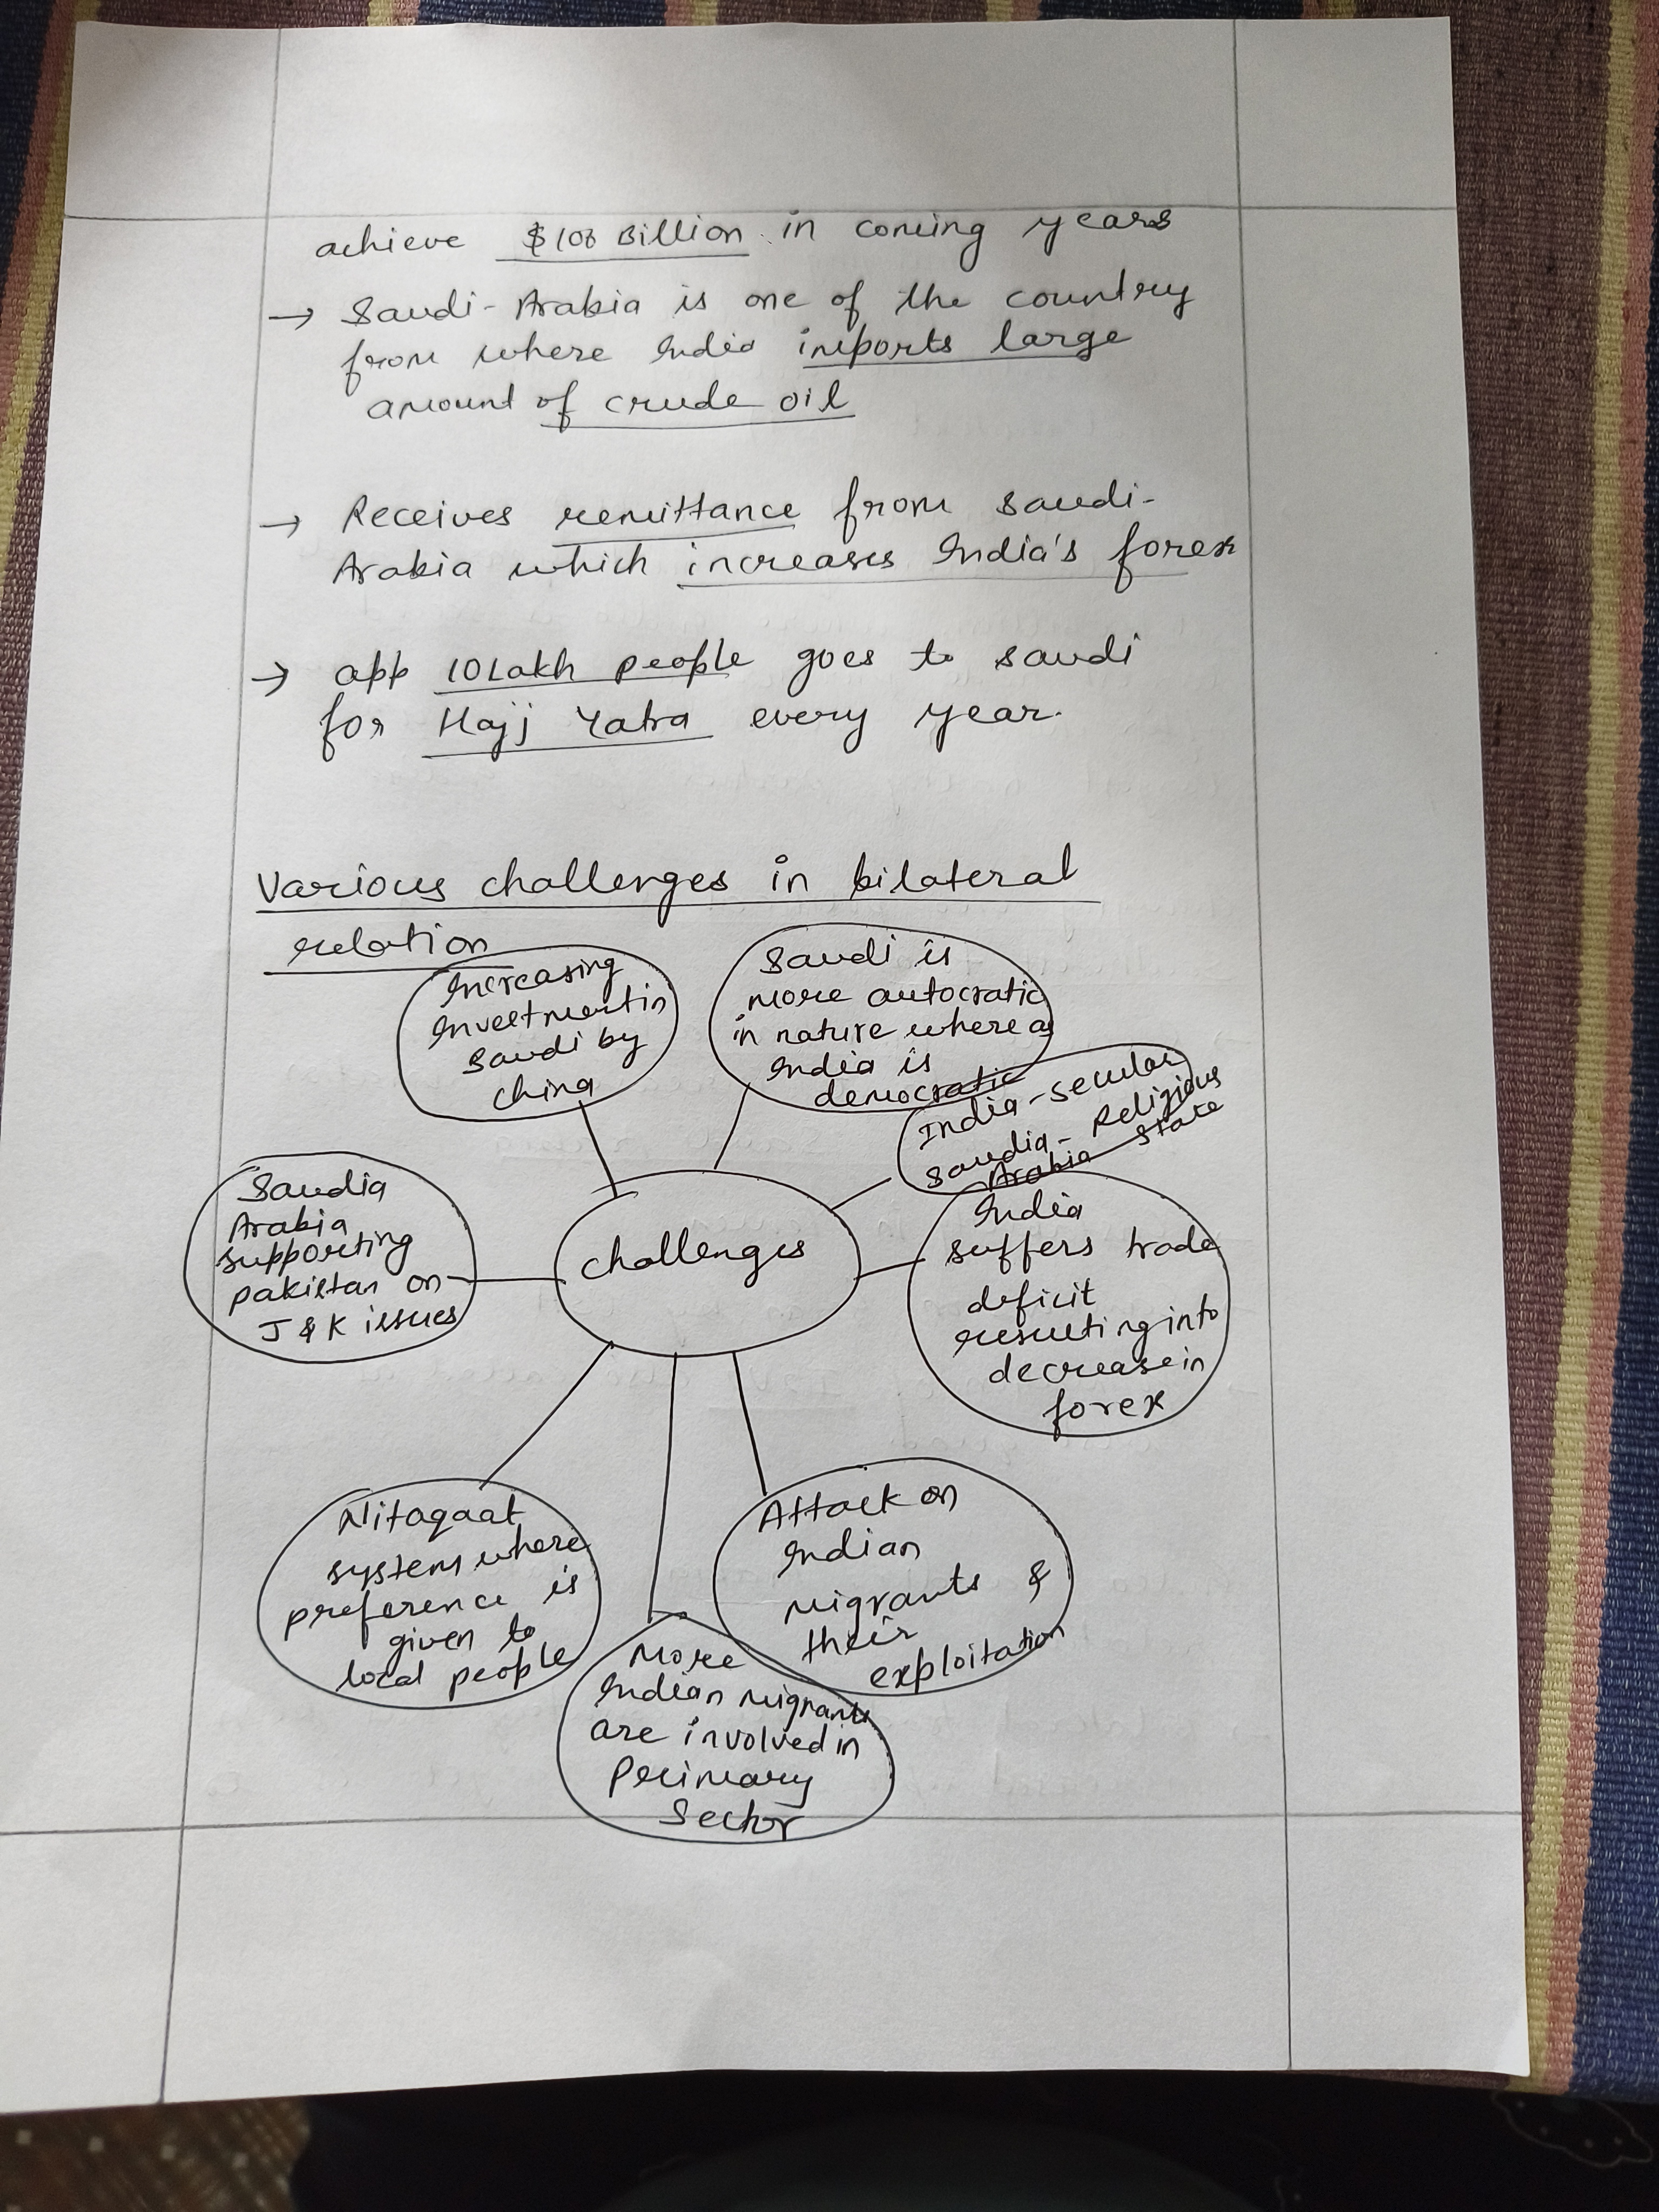 achieve $100 Billion in coming years
→ Saudi-Arabia is one of the country
from where India imports large
amount of crude oil
→ Receives remittance from saudi-
Arabia which increases India's forex
→ app 10 Lakh people goes to saudi
for Hajj Yatra every year.
Various challenges in bilateral
relation
Increasing
Investment in
Saudi by
China
Saudi is
more autocratic
in nature where as
India is
democratic
India - secular
Saudia - Religious
Arabia State
Saudia
Arabia
supporting
pakistan on
J & K issues
challenges
India
suffers trade
deficit
resulting into
decrease in
forex
Nitaqaat
system where
preference is
given to
local people
Attack on
Indian
migrants &
their
exploitation
More
Indian migrants
are involved in
Primary
Sector